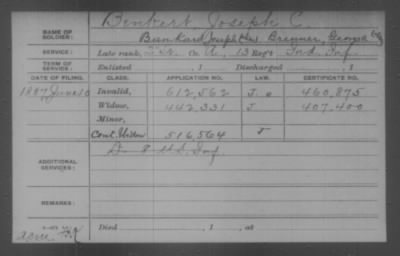 NAME OF SOLDIER: Benkert Joseph C.
Joseph Bremer, George
SERVICE: Late rank, Co. A, 13 Reg't Ind. Inf.
TERM OF SERVICE: Enlisted , 1 Discharged , 1
DATE OF FILING. CLASS. APPLICATION NO. LAW. CERTIFICATE NO.
1887 June 10 Invalid, 612,562 J. 460,875
Widow, 442,331 J 407,400
Minor,
Cont. Widow 516,564 J
ADDITIONAL SERVICES: D. 9 U.S. Inf.
REMARKS:
Died , 1 , at